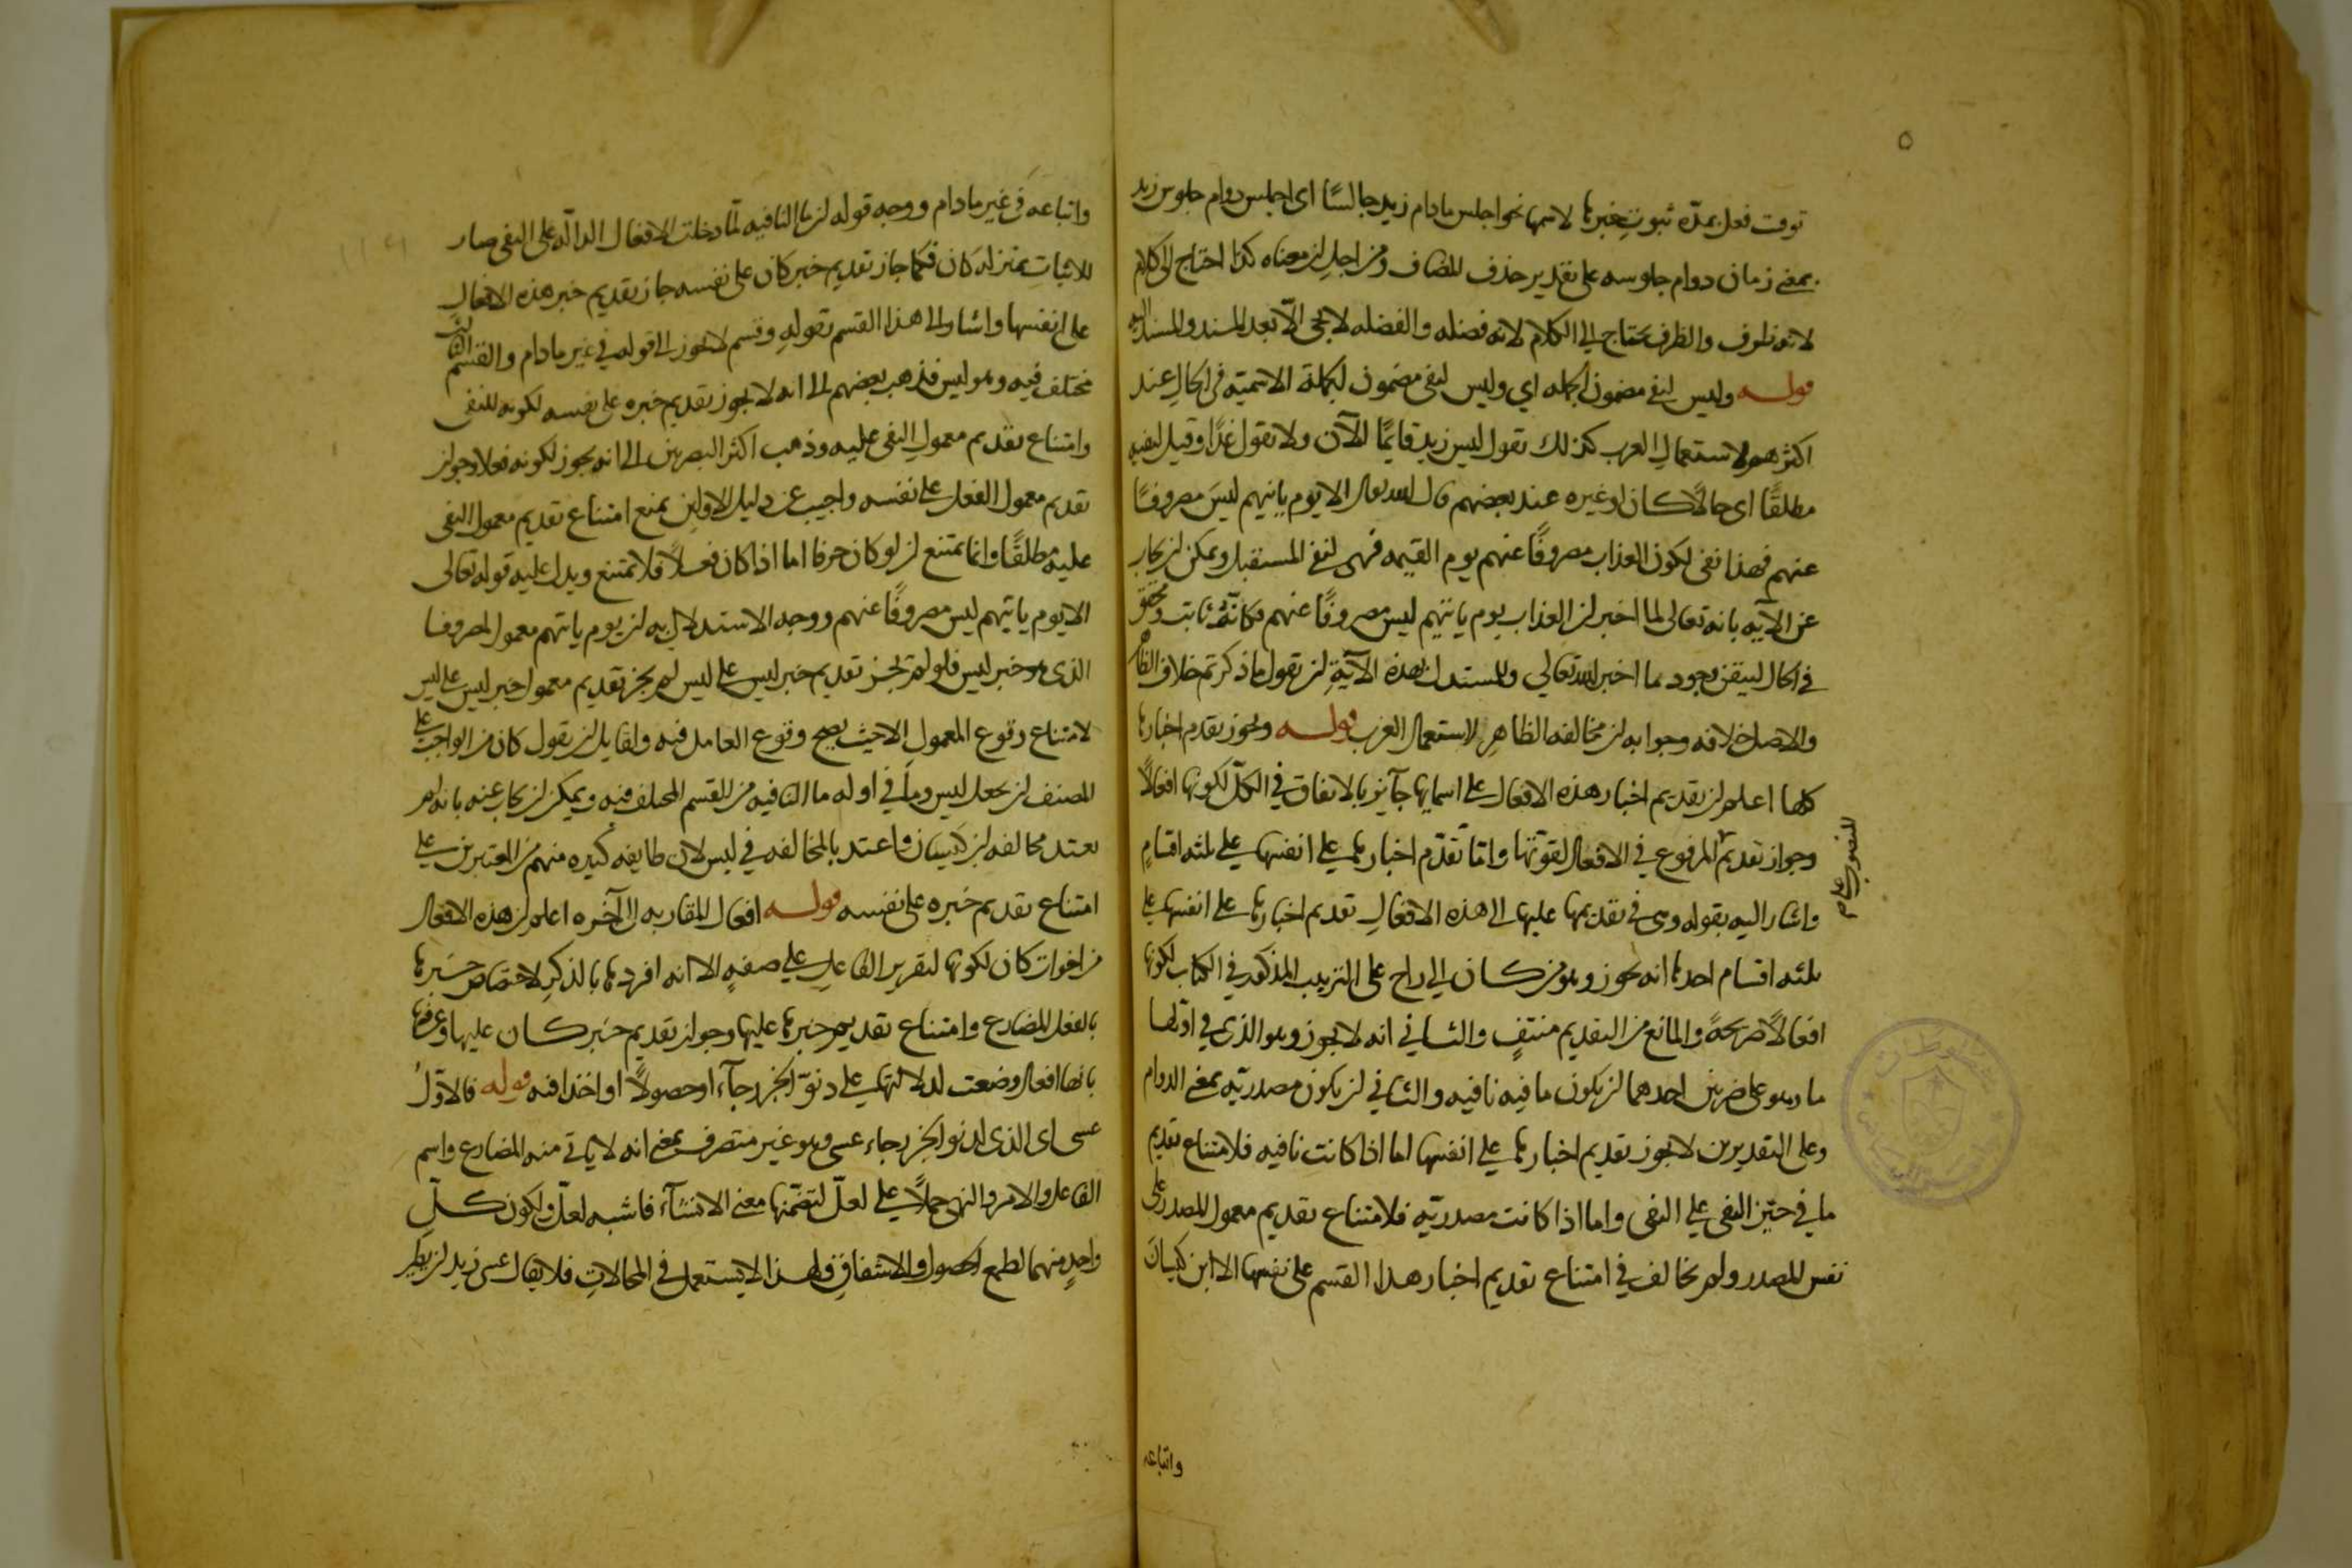 توقت فعل بمدّه ثبوت خبرها لاسمها نحو اجلس مادام زيد جالسًا اى اجلس دوام جلوس زيد
بمعنى زمان دوام جلوسه على تقدير حذف المضاف ومن اجل ان معناه كذا احتاج الى كلام
لانه ظرف والظرف يحتاج الى الكلام لانه فضله والفضله لا تجى الّا بعد المسند والمسند اليه
قوله وليس لنفى مضمون الجمله اي وليس لنفى مضمون الجملة الاسمية فى الحال عند
اكثرهم لاستعمال العرب كذلك تقول ليس زيد قايمًا الآن ولا تقول غدًا وقيل لنفيه
مطلقًا اى حالًا كان او غيره عند بعضهم قال الله تعالى الا يوم ياتيهم ليسَ مصروفًا
عنهم فهذا نفى لكون العذاب مصروفًا عنهم يوم القيمه فهى لنفى المستقبل ويمكن ان يجاب
عن الآيه بانه تعالى لما اخبر ان العذاب يوم ياتيهم ليس مصروفًا عنهم فكانّه ثابت ومحقق
فى الحال لتيقن وجود ما اخبر الله تعالي وللمستدل بهذه الآيةِ ان تقول ما ذكرتم خلاف الظاهر
والاصل خلافه وجوابه ان مخالفه الظاهرِ لاستعمال العرب قوله ويجوز تقدم اخبارها
كلها اعلم ان تقديم اخبار هذه الافعال على اسمايها جآيز بالاتفاق في الكلّ لكونها افعالًا
وجواز تقديم المرفوع في الافعال لقوّتها وامّا تقدّم اخبارها على انفسها على ثلثه اقسامٍ
المنصوب على
واشار اليه بقوله وهى فى تقديمها عليها الى هذه الافعالِ تقديم اخبارها على انفسها على
ثلثه اقسام احدها انه يجوز وهو من كان الى راح على الترتيب المذكور في الكتاب لكونها
افعالًا صريحةً والمانع من التقديم منتفٍ والثاني انه لا يجوز وهو الذى في اوّلها
ما وهو على ضربين احدهما ان يكون ما فيه نافيه والثاني ان يكون مصدريّه بمعنى الدوام
وعلى التقديرين لا يجوز تقديم اخبارها على انفسها اما اذا كانت نافيه فلامتناع تقديم
ما في حيّز النفى علي النفى واما اذا كانت مصدريّه فلامتناع تقديم معمول المصدر على
نفس المصدر ولم يخالف في امتناع تقديم اخبار هذا القسم على نفسها الا ابن كيسانَ
واتباعه
واتباعه فى غير مادام ووجه قوله ان ما النافيه لمّا دخلت الافعال الدالّه على النفى صار
للاثباتِ بمنزله كان فكما جاز تقديم خبر كان على نفسه جاز تقديم خبر هذه الافعال
على انفسها واشار الى هذا القسم بقولهِ وقسم لا يجوز الى قوله في غير مادام والقسم الثالث
مختلف فيه وهو ليس فذهب بعضهم الى انه لا يجوز تقديم خبره على نفسه لكونه للنفى
وامتناع تقديم معمول النفى عليه وذهب اكثر البصريين الى انه يجوز لكونه فعلا وجواز
تقديم معمول الفعل على نفسه واجيب عن دليل الاولين بمنع امتناع تقديم معمول النفى
عليه مطلقًا وانما يمتنع ان لو كان حرفا اما اذا كان فعلًا فلا يمتنع ويدل عليه قوله تعالى
الا يوم ياتيهم ليس مصروفًا عنهم ووجه الاستدلال به ان يوم ياتيهم معمول لمصروفا
الذى هو خبر ليس فلو لم يجز تقديم خبر ليس على ليس لم يجز تقديم معمول خبر ليس على ليس
لامتناع وقوع المعمول الا حيث يصح وقوع العامل فيه ولقايل ان يقول كان من الواجب على
المصنف ان يجعل ليس وما في اوله ما النافيه من القسم المختلف فيه ويمكن ان يجاب عنه بانه لم
يعتد مخالفه ابن كيسان واعتد بالمخالفه في ليس لان طايفه كثيره منهم من المعتبرين على
امتناع تقديم خبره على نفسه قوله افعال المقاربه الى آخره اعلم ان هذه الافعال
من اخوات كان لكونها لتقرير الفاعل على صفهٍ الا انه افردها بالذكر لاختصاص خبرها
بالفعل المضارع وامتناع تقديم خبرها عليها وجواز تقديم خبر كان عليها وعرفها
بانها افعال وضعت لدلالتها على دنوّ الخبر رجآء او حصولًا او اخذا فيه قوله فالاوّلُ
عسى اى الذى لدنو الخبر رجاء عسى وهو غير متصرف بمعنى انه لا ياتى منه المضارع واسم
الفاعل والامر والنهى حملًا على لعلّ لتضمّنها معنى الانشآء فاشبه لعلّ ولكون كلّ
واحدٍ منهما لطمع الحصول والاشفاق ولهذا لا يستعمل فى المحالاتِ فلا يقال عسى زيد ان يطير